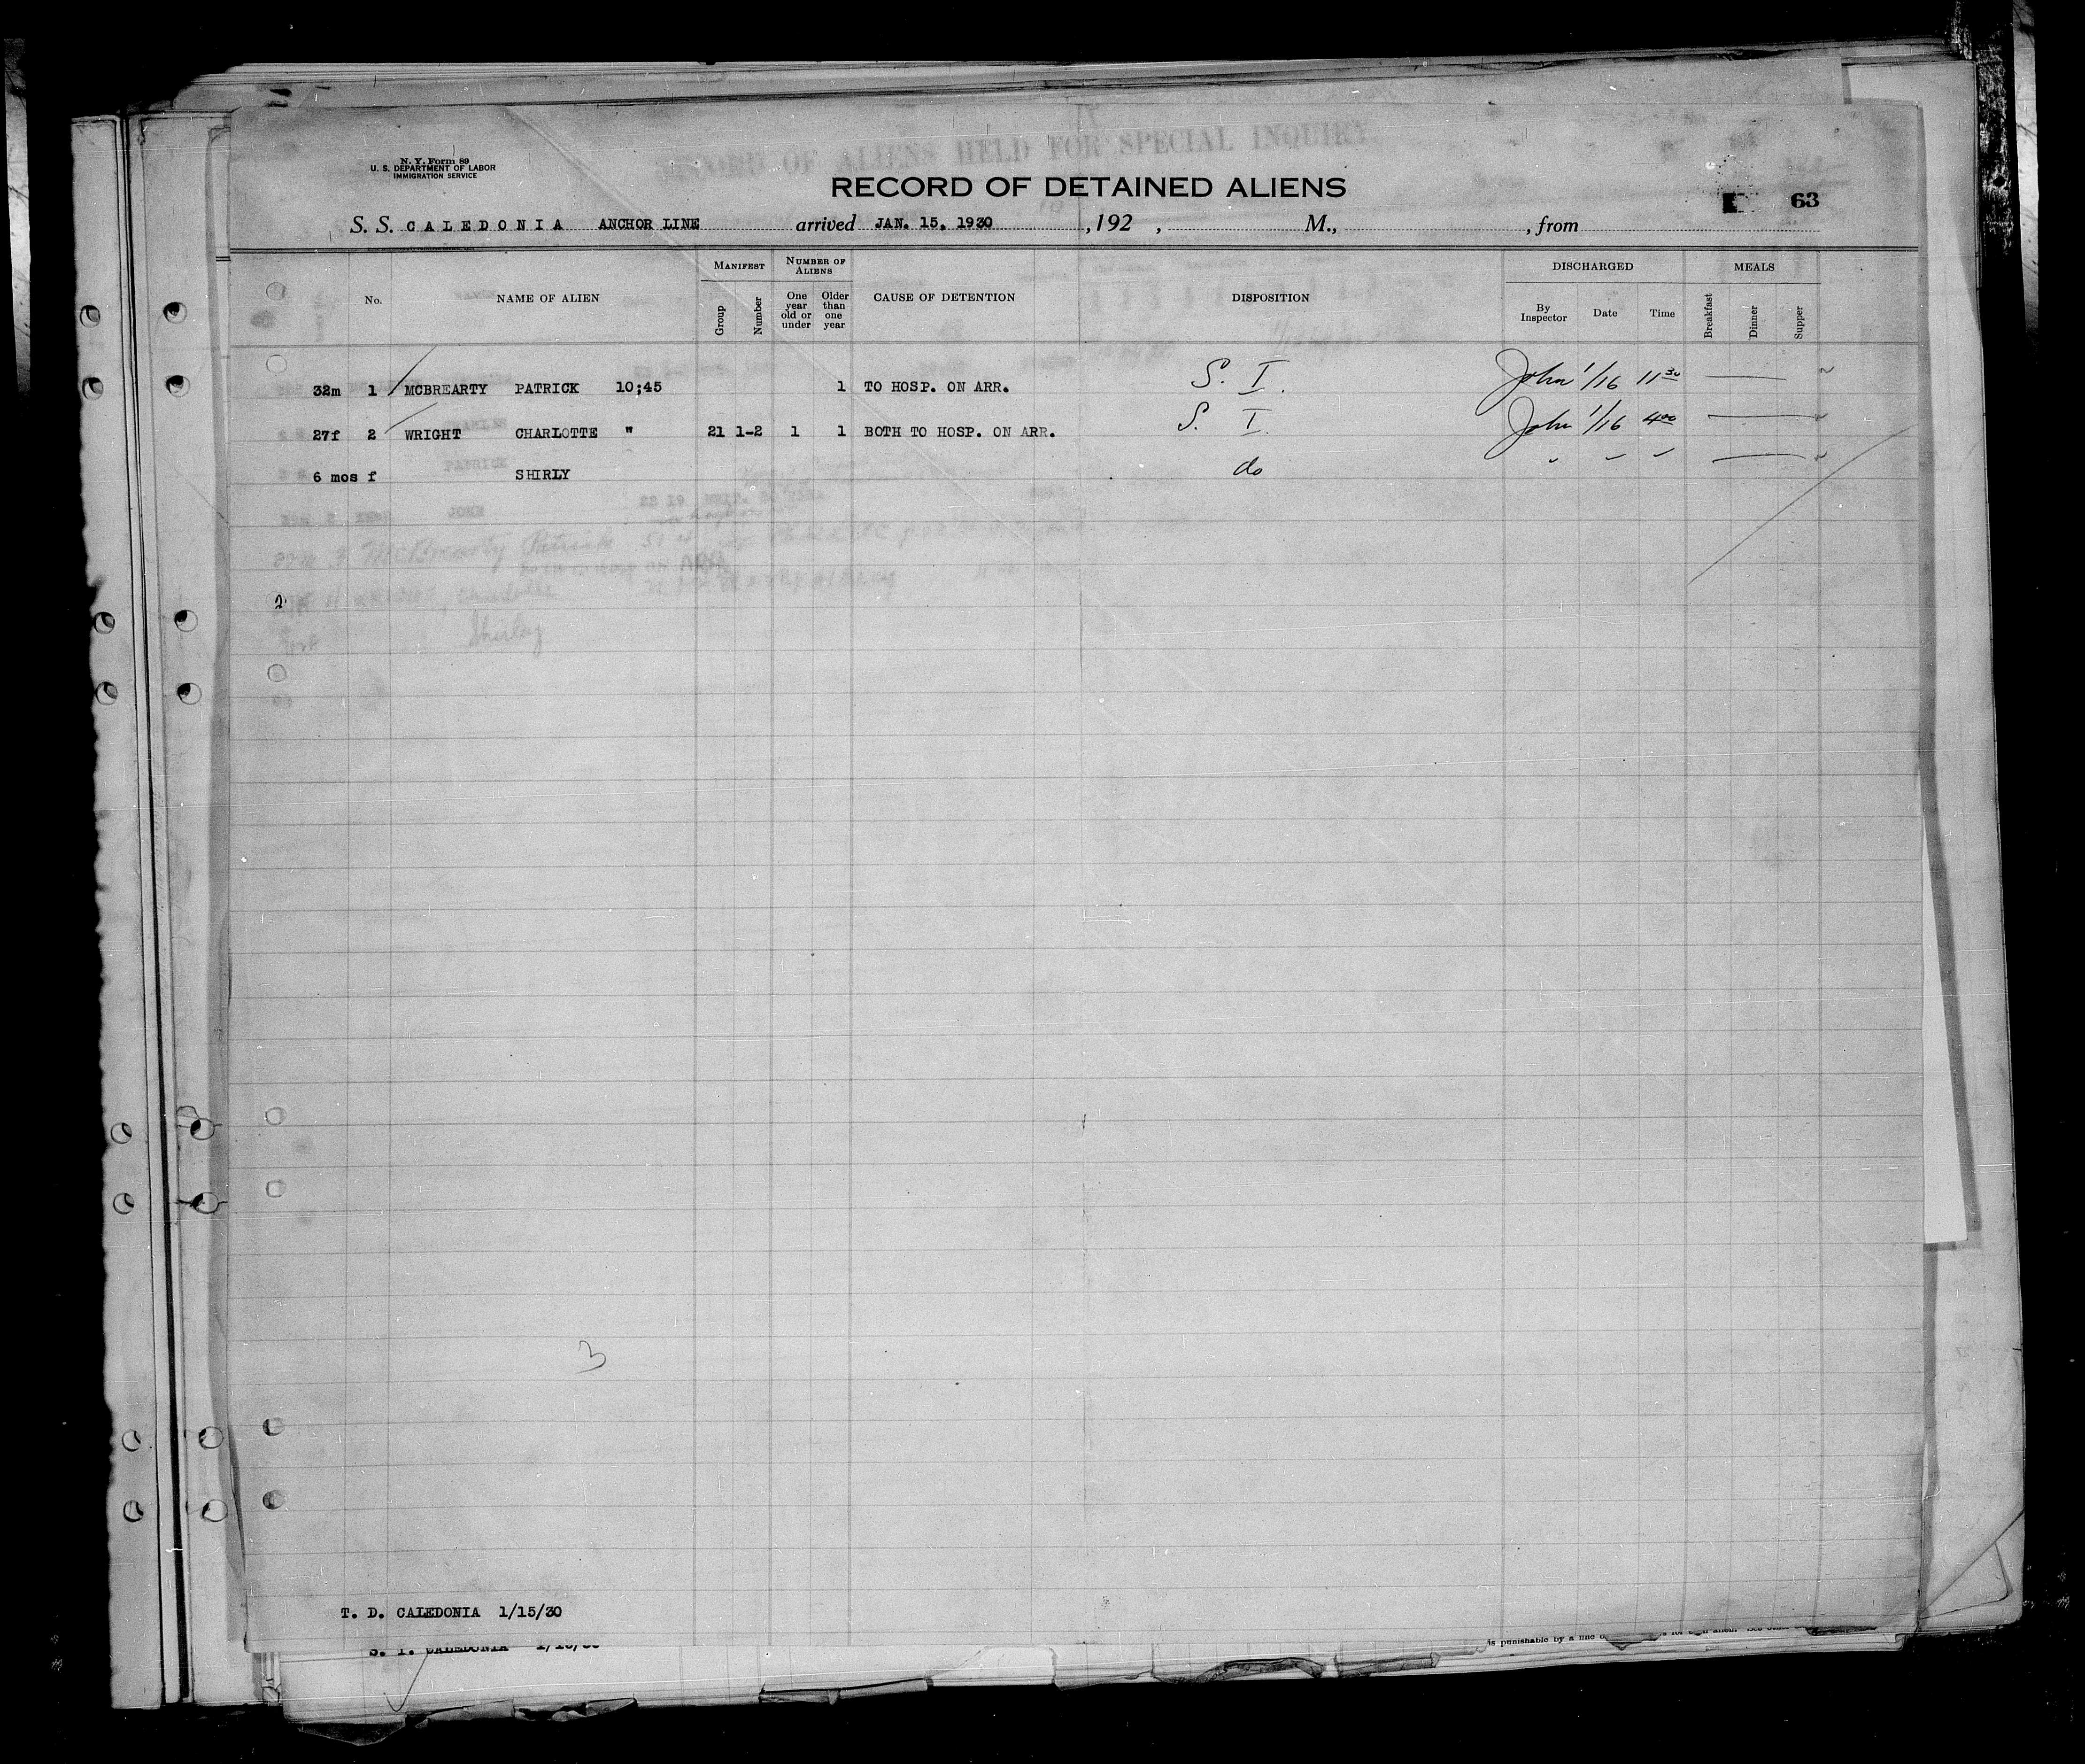 RECORD OF ALIENS HELD FOR SPECIAL INQUIRY
N. Y. Form 89
U. S. DEPARTMENT OF LABOR
IMMIGRATION SERVICE
RECORD OF DETAINED ALIENS
63
S. S. CALEDONIA ANCHOR LINE arrived JAN. 15, 1930 , 192 , M., , from
No. NAME OF ALIEN MANIFEST Group Number NUMBER OF ALIENS One year old or under Older than one year CAUSE OF DETENTION DISPOSITION DISCHARGED By Inspector Date Time MEALS Breakfast Dinner Supper
32m 1 MCBREARTY PATRICK 10;45 1 TO HOSP. ON ARR. S. I. John 1/16 11 30
27f 2 WRIGHT CHARLOTTE " 21 1-2 1 1 BOTH TO HOSP. ON ARR. S. I. John 1/16 4 00
6 mos f SHIRLY do " " "
PATRICK
JOHN
McBrearty Patrick
2
Shirley
3
T. D. CALEDONIA 1/15/30
S. I. CALEDONIA
is punishable by a fine